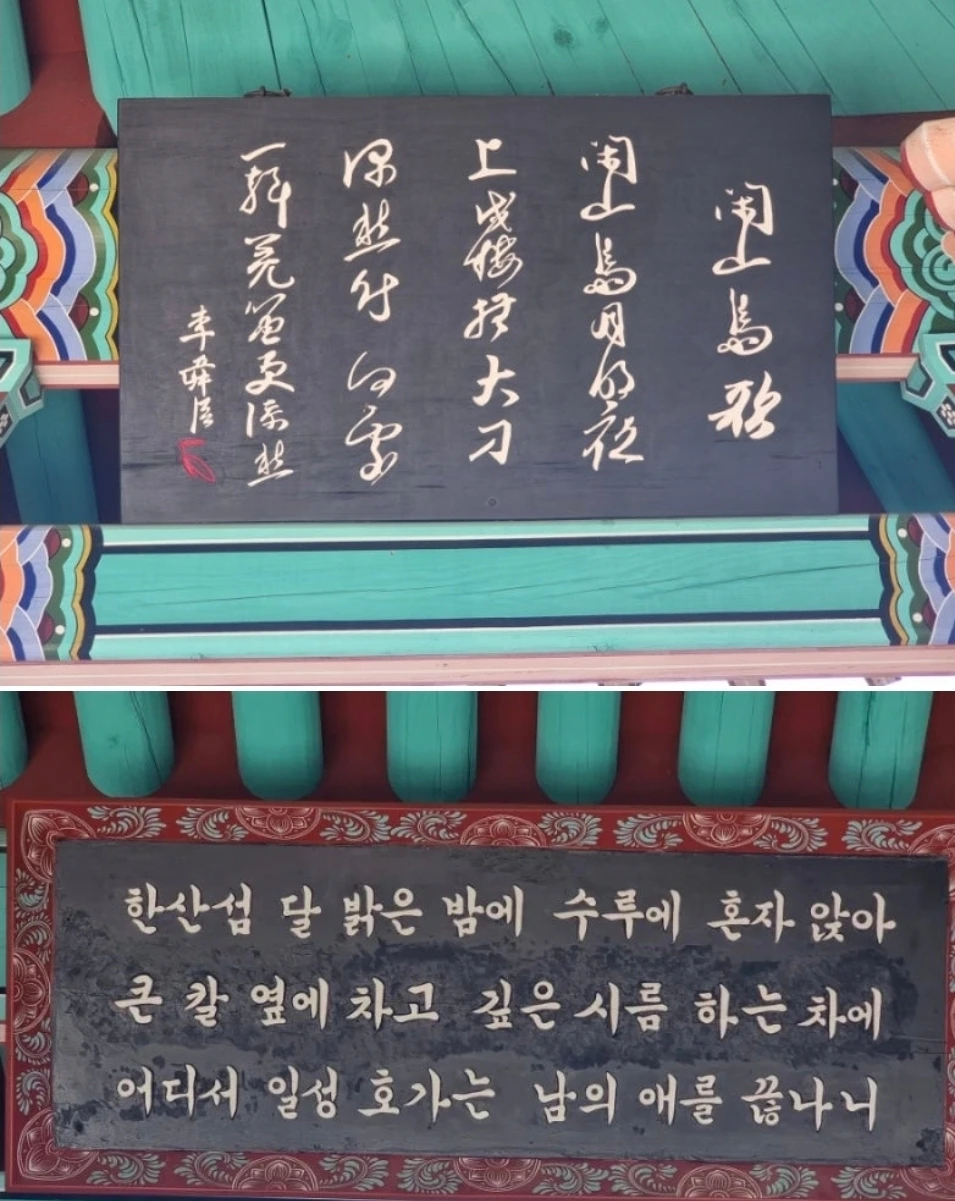 閑山島歌
閑山島月明夜
上戍樓撫大刀
深愁時何處
一聲羌笛更添愁
李舜臣
한산섬 달 밝은 밤에 수루에 혼자 앉아
큰 칼 옆에 차고 깊은 시름 하는 차에
어디서 일성 호가는 남의 애를 끊나니